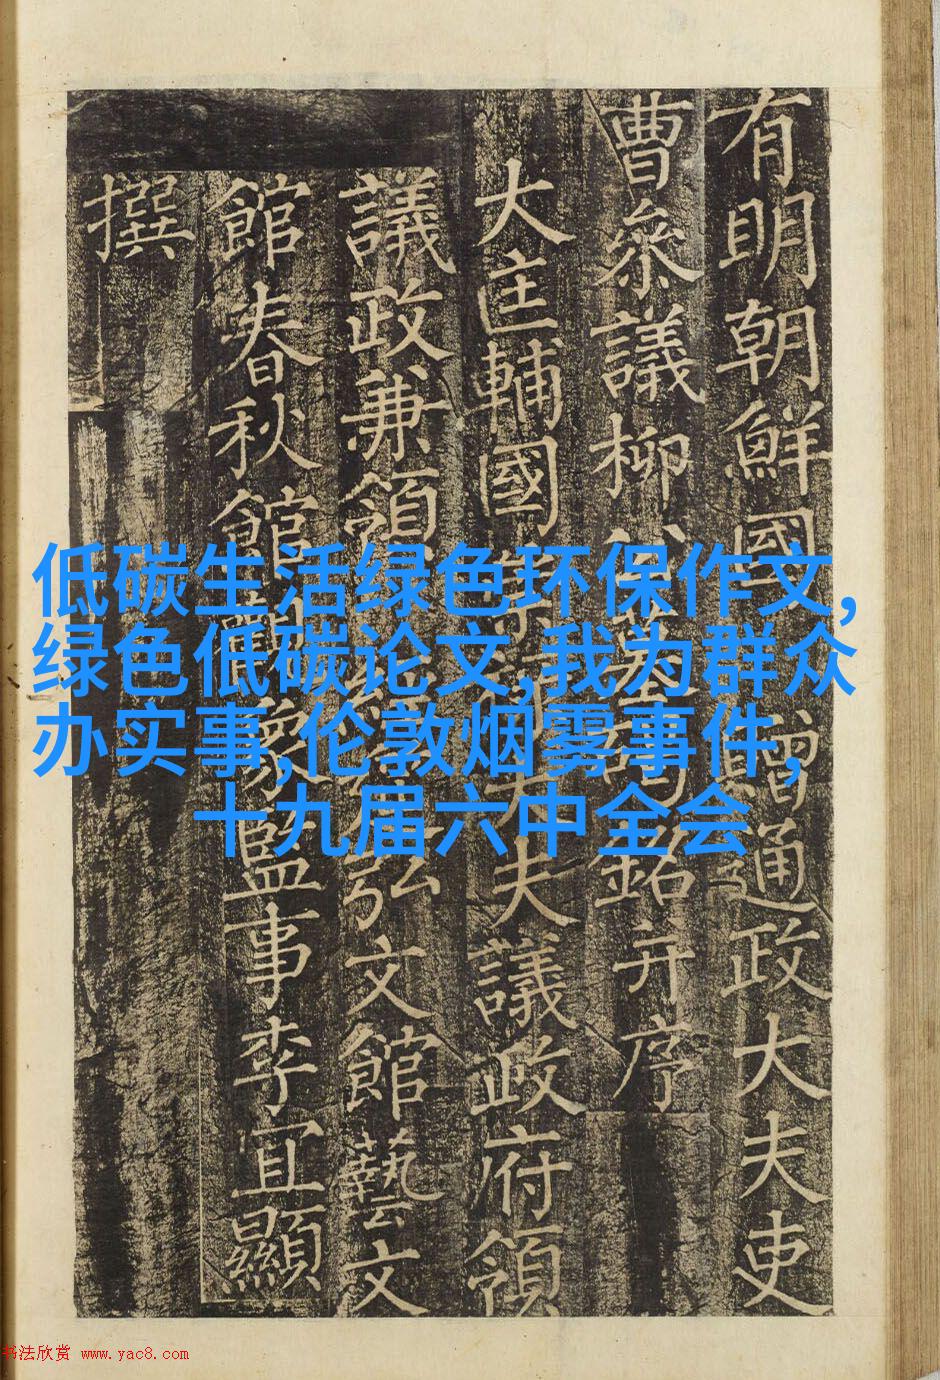 有明朝鮮國 贈通政大夫吏
曹叅議柳公墓銘并序
大匡輔國崇大夫議政府領
議政兼領經弘文館藝文
館春秋館觀象監事李宜顯
撰
低碳生活绿色环保作文,
绿色低碳论文,我为群众
办实事,伦敦烟雾事件,
十九届六中全会
书法欣赏 www.yac8.com